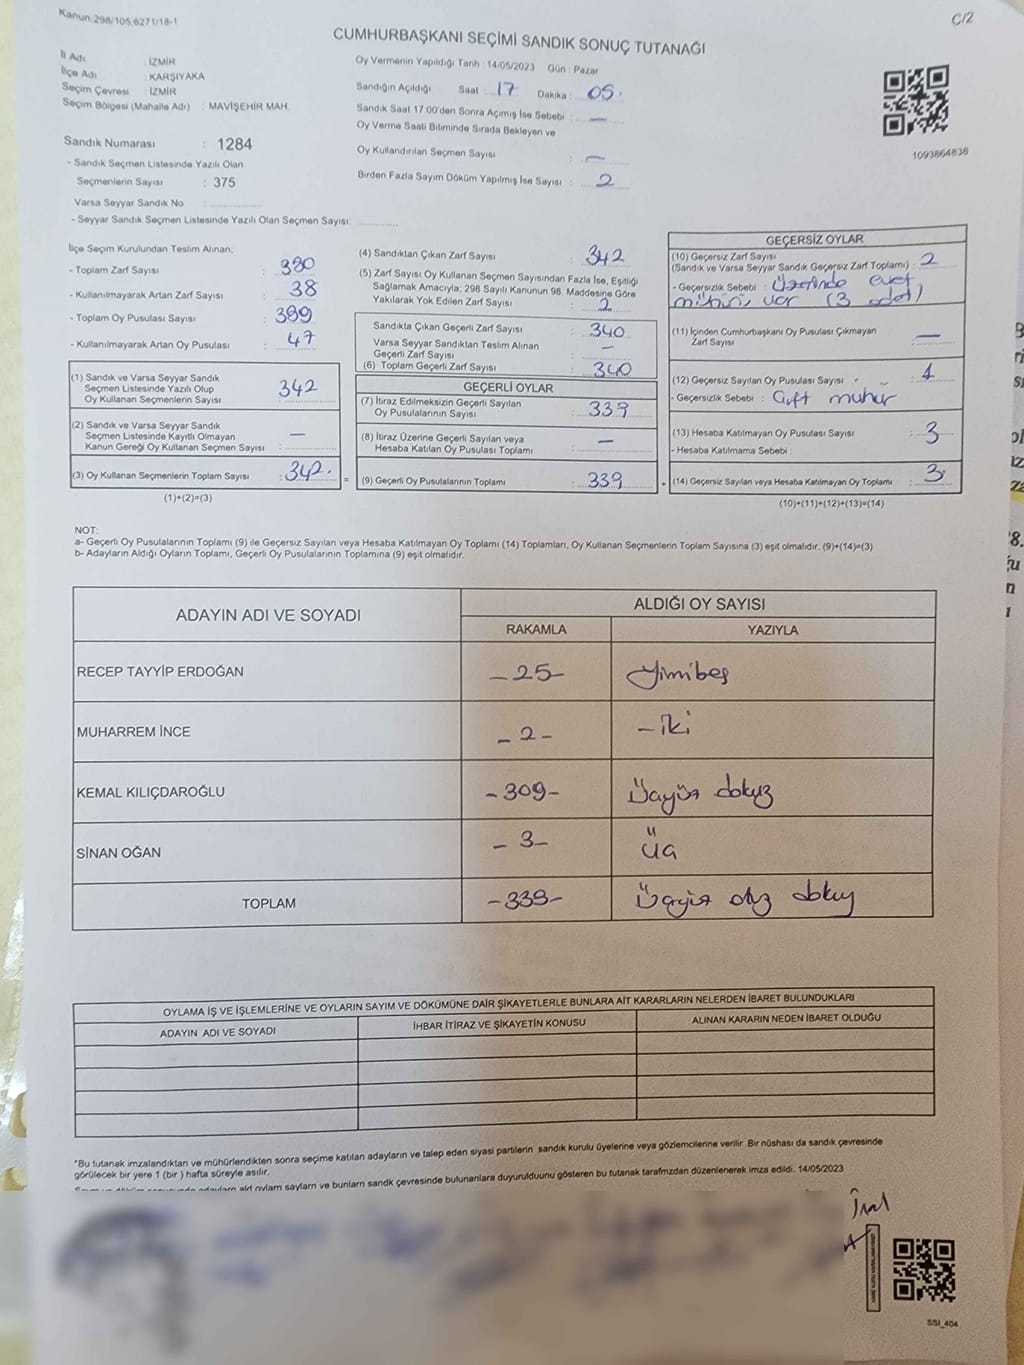 Kanun:298/105,6271/18-1
C/2
CUMHURBAŞKANI SEÇİMİ SANDIK SONUÇ TUTANAĞI
İl Adı : İZMİR
İlçe Adı : KARŞIYAKA
Seçim Çevresi : İZMİR
Seçim Bölgesi (Mahalle Adı) : MAVİŞEHİR MAH.
Sandık Numarası : 1284
- Sandık Seçmen Listesinde Yazılı Olan
Seçmenlerin Sayısı : 375
Varsa Seyyar Sandık No :
- Seyyar Sandık Seçmen Listesinde Yazılı Olan Seçmen Sayısı:
Oy Vermenin Yapıldığı Tarih : 14/05/2023 Gün : Pazar
Sandığın Açıldığı Saat : 17 Dakika : 05.
Sandık Saat 17.00'den Sonra Açımış İse Sebebi : —
Oy Verme Saati Bitiminde Sırada Bekleyen ve
Oy Kullandırılan Seçmen Sayısı : —
Birden Fazla Sayım Döküm Yapılmış İse Sayısı : 2
1093864836
İlçe Seçim Kurulundan Teslim Alınan;
- Toplam Zarf Sayısı : 380
- Kullanılmayarak Artan Zarf Sayısı : 38
- Toplam Oy Pusulası Sayısı : 389
- Kullanılmayarak Artan Oy Pusulası : 47
(1) Sandık ve Varsa Seyyar Sandık
Seçmen Listesinde Yazılı Olup
Oy Kullanan Seçmenlerin Sayısı : 342
(2) Sandık ve Varsa Seyyar Sandık
Seçmen Listesinde Kayıtlı Olmayan
Kanun Gereği Oy Kullanan Seçmen Sayısı : —
(3) Oy Kullanan Seçmenlerin Toplam Sayısı : 342.
(1)+(2)=(3)
(4) Sandıktan Çıkan Zarf Sayısı : 342
(5) Zarf Sayısı Oy Kullanan Seçmen Sayısından Fazla İse, Eşitliği
Sağlamak Amacıyla; 298 Sayılı Kanunun 98. Maddesine Göre
Yakılarak Yok Edilen Zarf Sayısı : 2
Sandıkla Çıkan Geçerli Zarf Sayısı : 340
Varsa Seyyar Sandıktan Teslim Alınan
Geçerli Zarf Sayısı : —
(6) Toplam Geçerli Zarf Sayısı : 340
GEÇERLİ OYLAR
(7) İtiraz Edilmeksizin Geçerli Sayılan
Oy Pusulalarının Sayısı : 339
(8) İtiraz Üzerine Geçerli Sayılan veya
Hesaba Katılan Oy Pusulası Toplamı : —
(9) Geçerli Oy Pusulalarının Toplamı : 339
GEÇERSİZ OYLAR
(10) Geçersiz Zarf Sayısı
(Sandık ve Varsa Seyyar Sandık Geçersiz Zarf Toplamı) : 2
- Geçersizlik Sebebi : Üzerinde evet
mührü var (3 adet)
(11) İçinden Cumhurbaşkanı Oy Pusulası Çıkmayan
Zarf Sayısı : —
(12) Geçersiz Sayılan Oy Pusulası Sayısı : 1
- Geçersizlik Sebebi : Çift mühür
(13) Hesaba Katılmayan Oy Pusulası Sayısı : 3
- Hesaba Katılmama Sebebi :
(14) Geçersiz Sayılan veya Hesaba Katılmayan Oy Toplamı : 3
(10)+(11)+(12)+(13)=(14)
NOT:
a- Geçerli Oy Pusulalarının Toplamı (9) ile Geçersiz Sayılan veya Hesaba Katılmayan Oy Toplamı (14) Toplamları, Oy Kullanan Seçmenlerin Toplam Sayısına (3) eşit olmalıdır. (9)+(14)=(3)
b- Adayların Aldığı Oyların Toplamı, Geçerli Oy Pusulalarının Toplamına (9) eşit olmalıdır.
ADAYIN ADI VE SOYADI
ALDIĞI OY SAYISI
RAKAMLA YAZIYLA
RECEP TAYYİP ERDOĞAN -25- Yirmibeş
MUHARREM İNCE -2- -iki
KEMAL KILIÇDAROĞLU -309- Üçyüz dokuz
SİNAN OĞAN -3- Üç
TOPLAM -339- Üçyüz otuz dokuz
OYLAMA İŞ VE İŞLEMLERİNE VE OYLARIN SAYIM VE DÖKÜMÜNE DAİR ŞİKAYETLERLE BUNLARA AİT KARARLARIN NELERDEN İBARET BULUNDUKLARI
ADAYIN ADI VE SOYADI İHBAR İTİRAZ VE ŞİKAYETİN KONUSU ALINAN KARARIN NEDEN İBARET OLDUĞU
*Bu tutanak imzalandıktan ve mühürlendikten sonra seçime katılan adayların ve talep eden siyasi partilerin sandık kurulu üyelerine veya gözlemcilerine verilir. Bir nüshası da sandık çevresinde
görülecek bir yere 1 (bir ) hafta süreyle asılır.
SSI_404